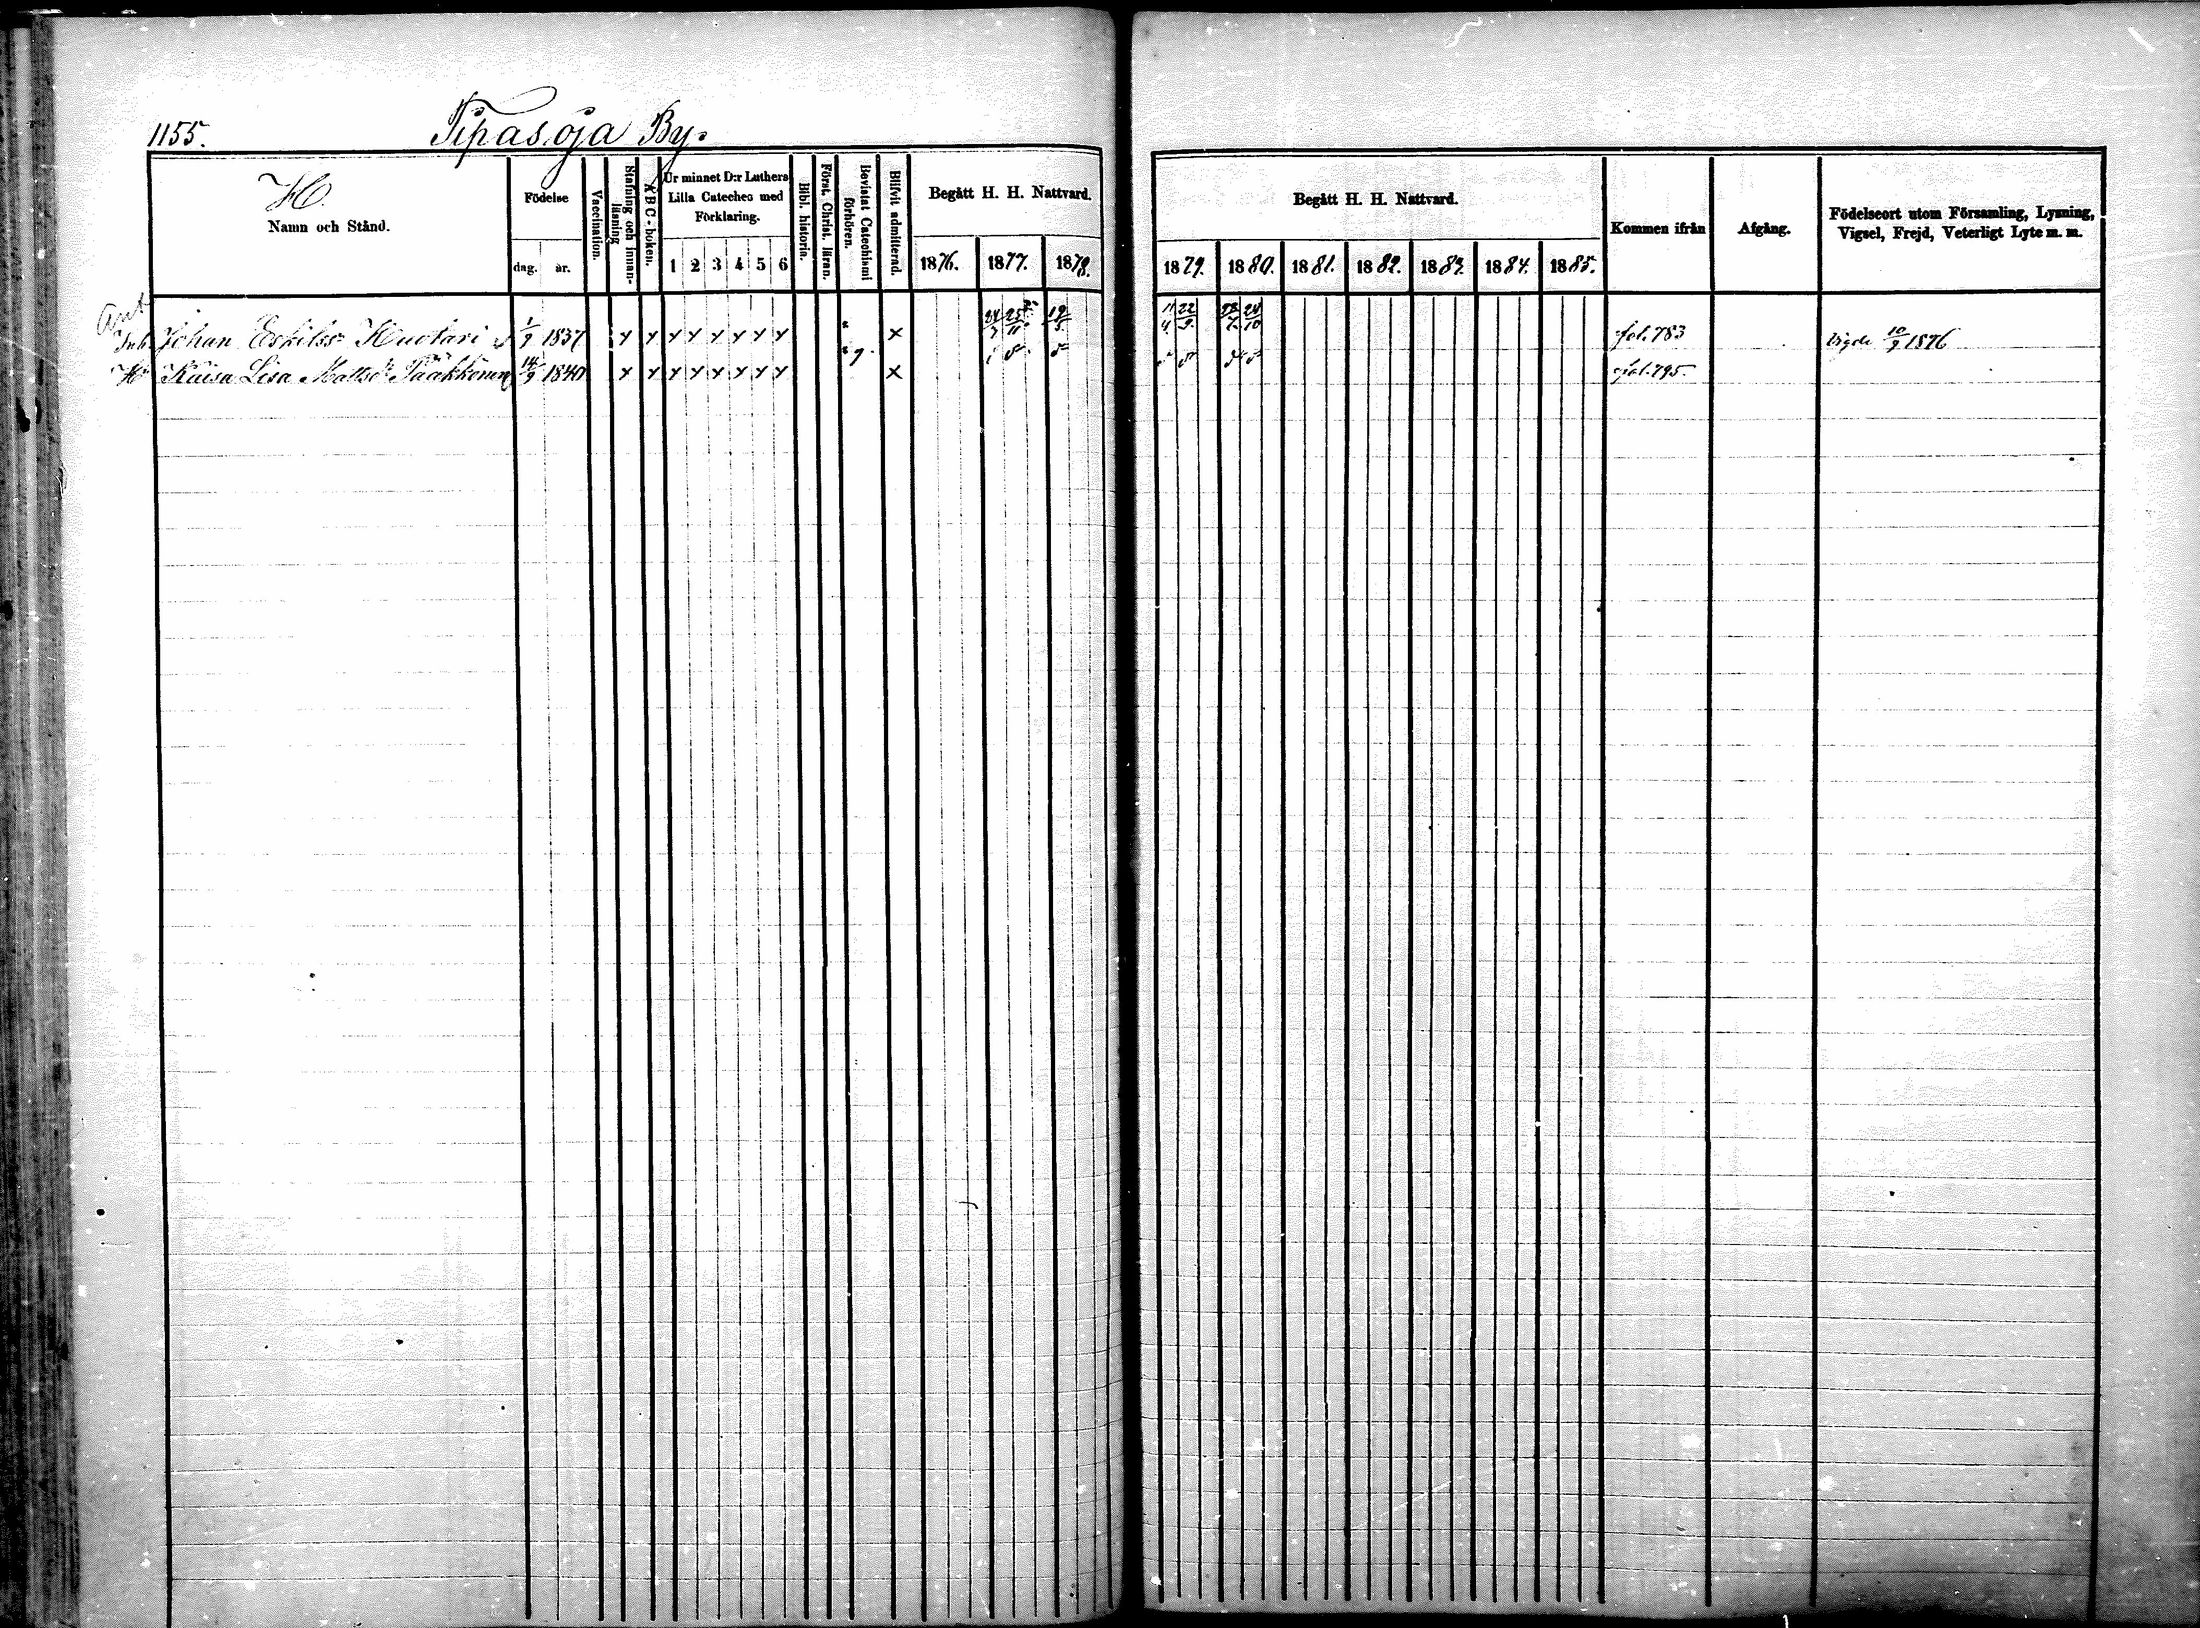 1155. Tipasoja By.
H.
Namn och Stånd.
Födelse
dag. år.
Vaccination.
Stafning och innanläsning
ABC-boken.
Ur minnet D:r Luthers Lilla Cateches med Förklaring.
1 2 3 4 5 6
Bibl. historia.
Först. Christ. läran.
Bevistat Catechismi förhören.
Blifvit admitterad.
Begått H. H. Nattvard.
1876. 1877. 1878.
Begått H. H. Nattvard.
1879. 1880. 1881. 1882. 1883. 1884. 1885.
Kommen ifrån
Afgång.
Födelseort utom Församling, Lysning, Vigsel, Frejd, Veterligt Lyte m. m.
24/7 25/11 19/5 11/4 22/9 24/10
Inh. Johan Eskilss: Huotari 1/7 1837 x x x x x x x x x fol. 783 Vigde 10/9 1876
H: Kaisa Lisa Mattsd: Pääkkönen 14/9 1840 x x x x x x x x x fol. 795.